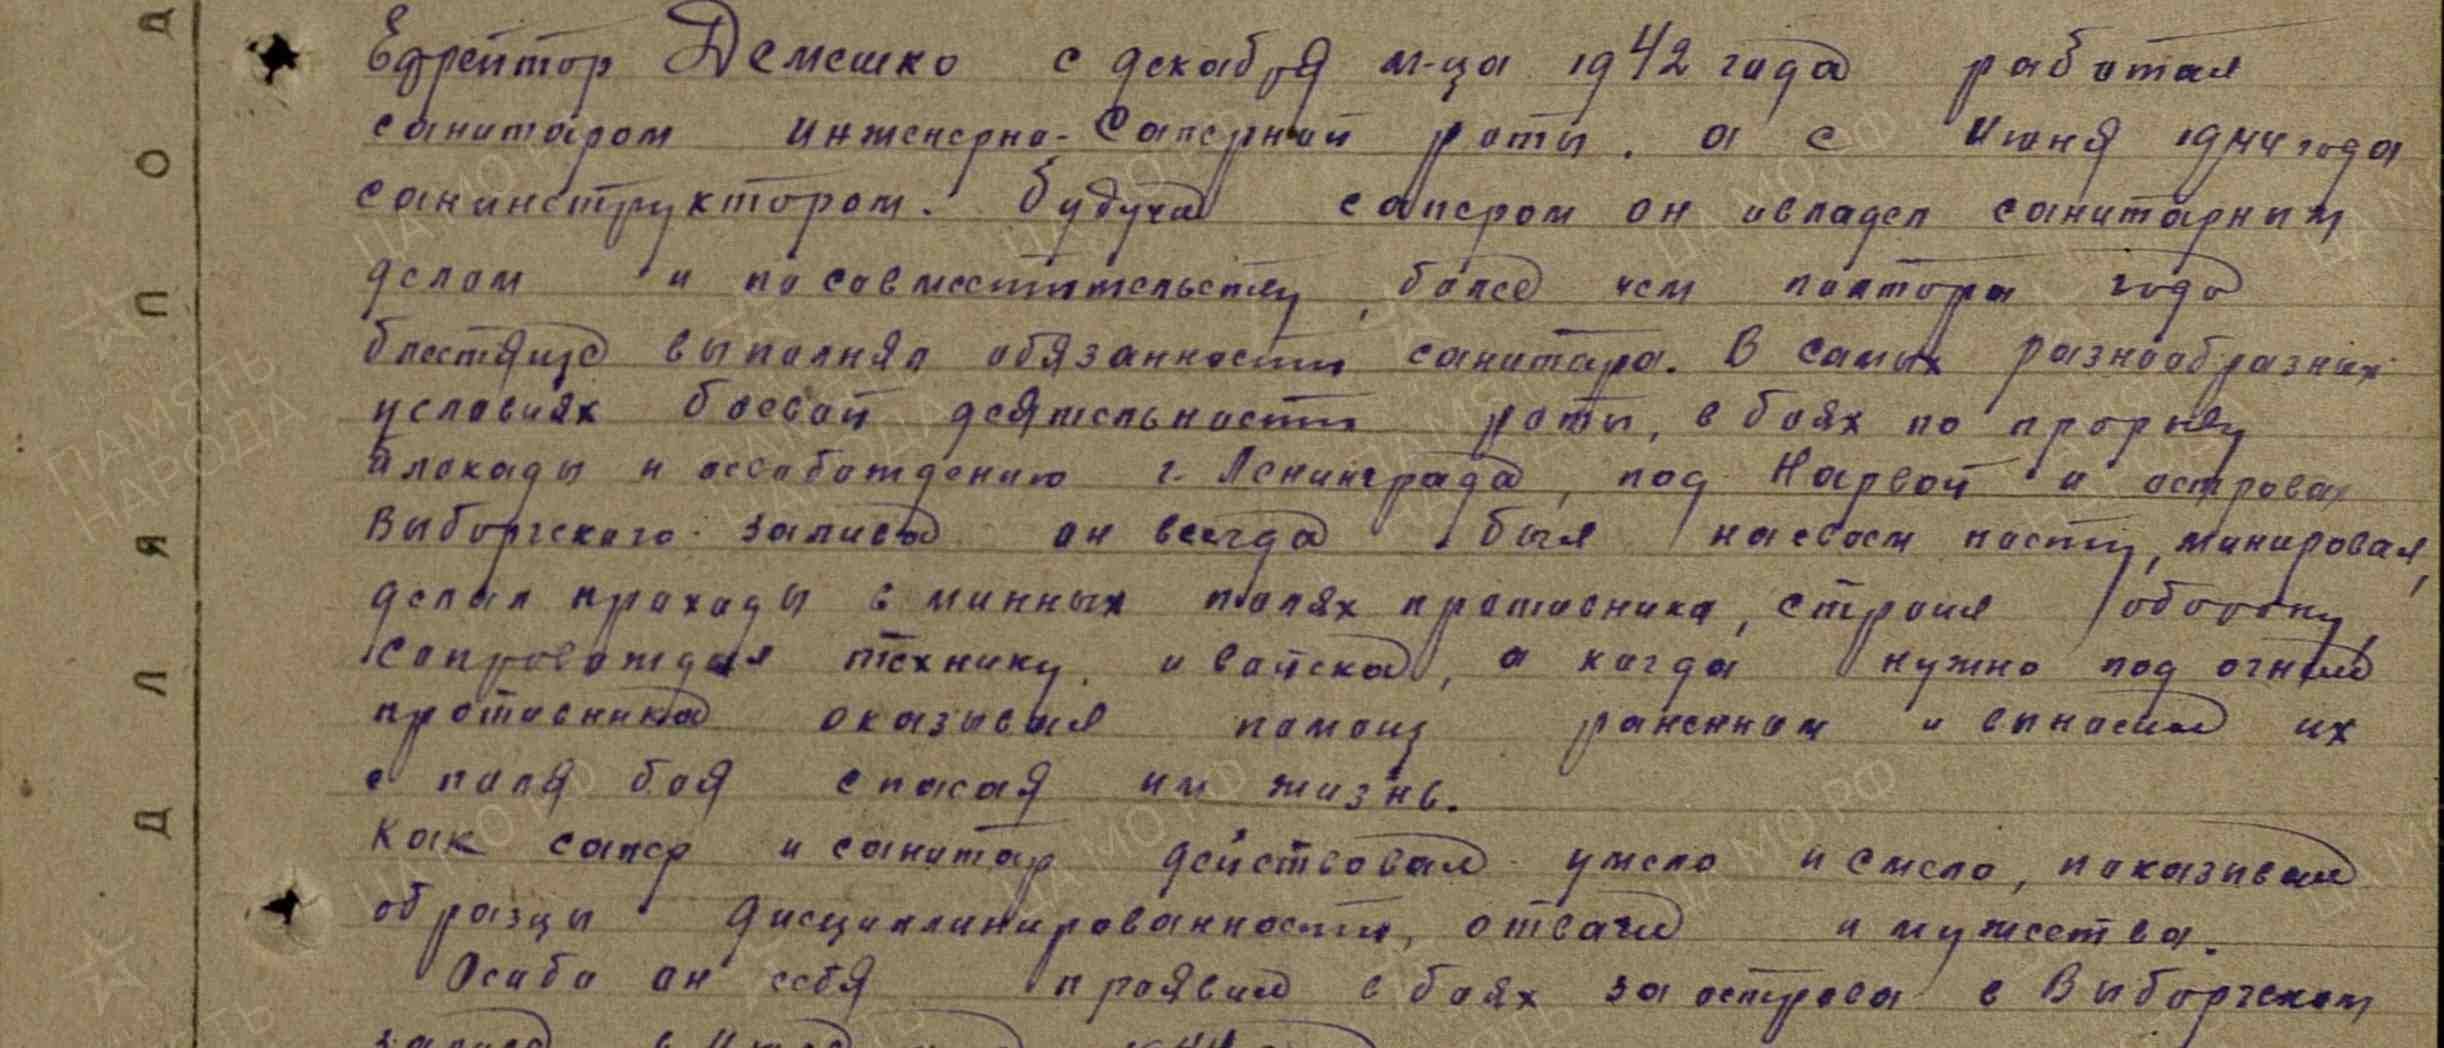 Ефрейтор Демешко с декабря м-ца 1942 года работал
санитаром инженерно-Саперной роты, а с Июня 1944 года
санинструктором. Будучи сапером он овладел санитарным
делом и по совместительству, более чем полтора года
блестяще выполнял обязанности санитара. В самых разнообразных
условиях боевой деятельности роты, в боях по прорыву
блокады и освобождению г. Ленинграда, под Нарвой и островах
Выборгского залива он всегда был на своем посту, минировал,
делал проходы в минных полях противника, строил оборону,
Сопровождал технику и войска, а когда нужно под огнем
противника оказывал помощ раненным и выносил их
с поля боя спасая им жизнь.
Как сапер и санитар действовал умело и смело, показывал
образцы дисциплинированности, отваги и мужества.
Особо он себя проявил в боях за острова в Выборгском
ДЛЯ ПОД
ПАМЯТЬ НАРОДА
ЦА МО РФ